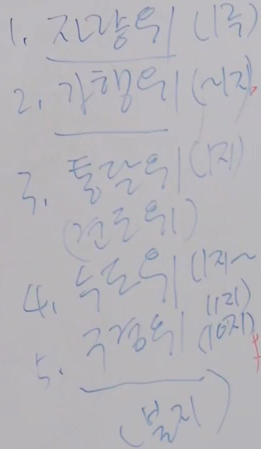 1. 자량위 (1류)
2. 가행위 (~1지)
3. 통달위 (1지)
(견도위)
4. 수도위 (1지~
10지)
5. 구경위
(불지)